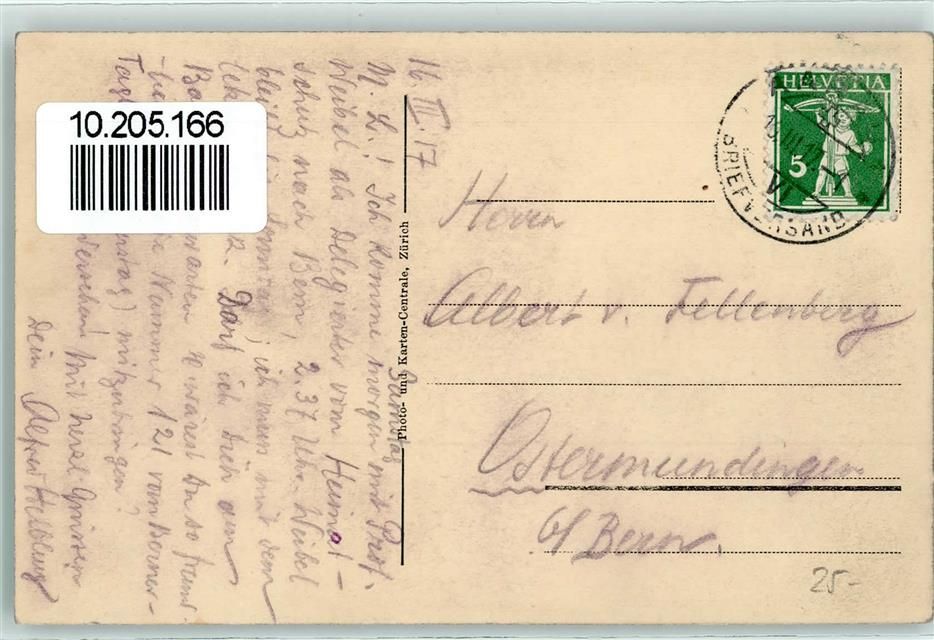 10.205.166
HELVETIA
5
BRIEFVERSAND
VI
Photo- und Karten-Centrale, Zürich
Herrn
Albert v. Fellenberg
Ostermundingen
b/ Bern.
25-
16. III. 17
Samstag
M. L.! Ich komme morgen mit Prof.
Weibel als Delegierter vom Heimat-
schutz nach Bern! 2.37 Uhr. Weibel
bleibt bis Sonntag, ich muss mit dem
Darf ich Dich am
erwarten wärest Du so freund-
Nummer 121 vom Berner-
Tag mitzubringen?
Mit herzl Grüssen
Dein Alfred Helbling